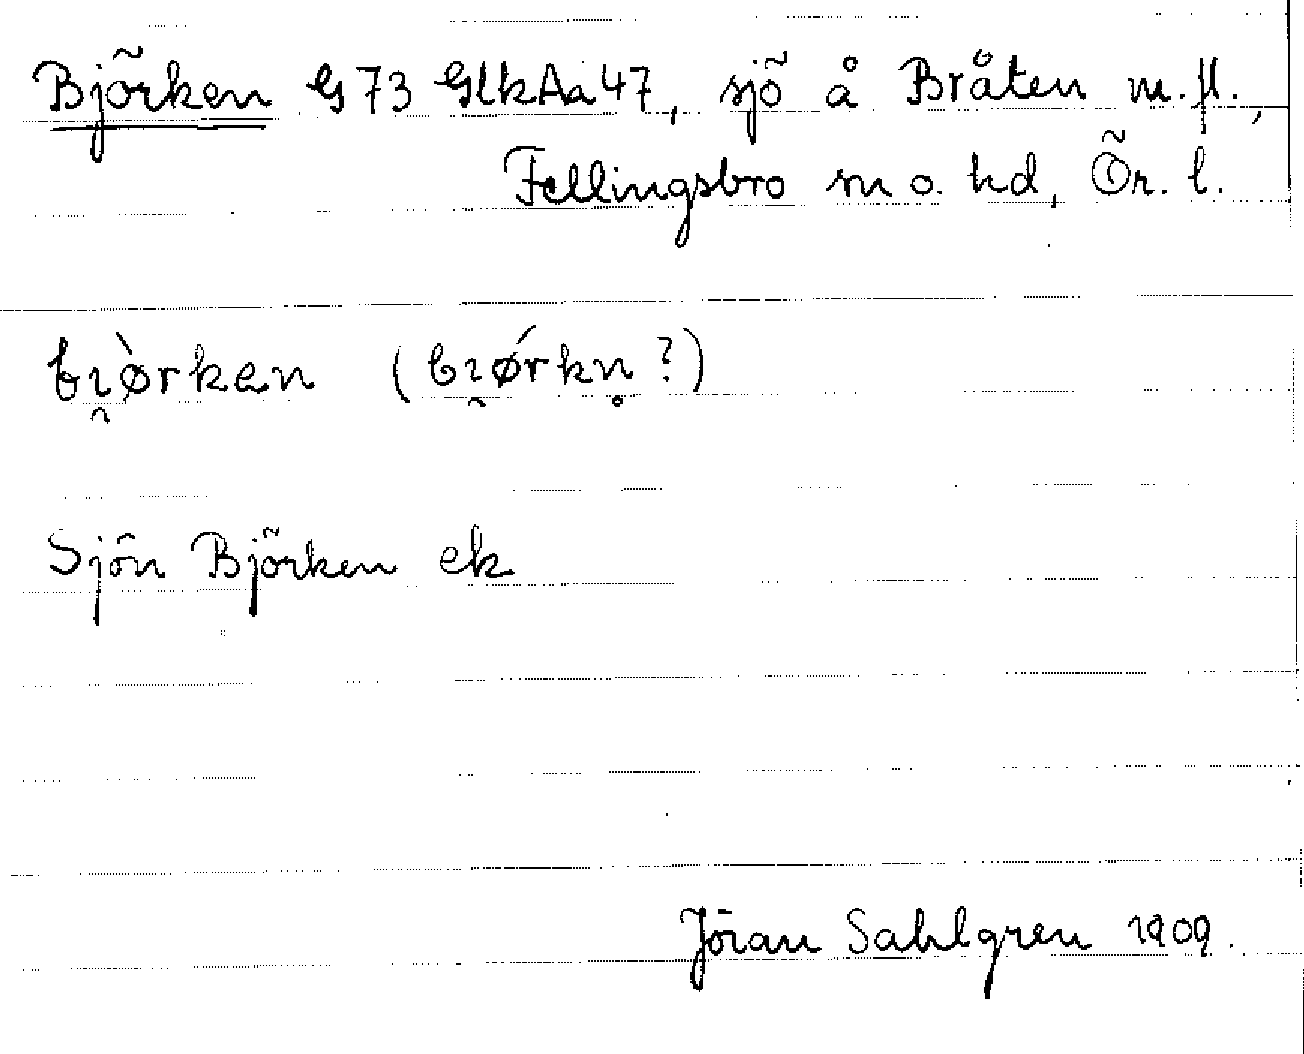 Björken G 73 GlkAa47, sjö å Bråten m.fl.,
Fellingsbro sn o. hd, Ör. l.
bı̯ørken (bı̯ǿrkn̥ ?)
Sjön Björken ek
Jöran Sahlgren 1909.